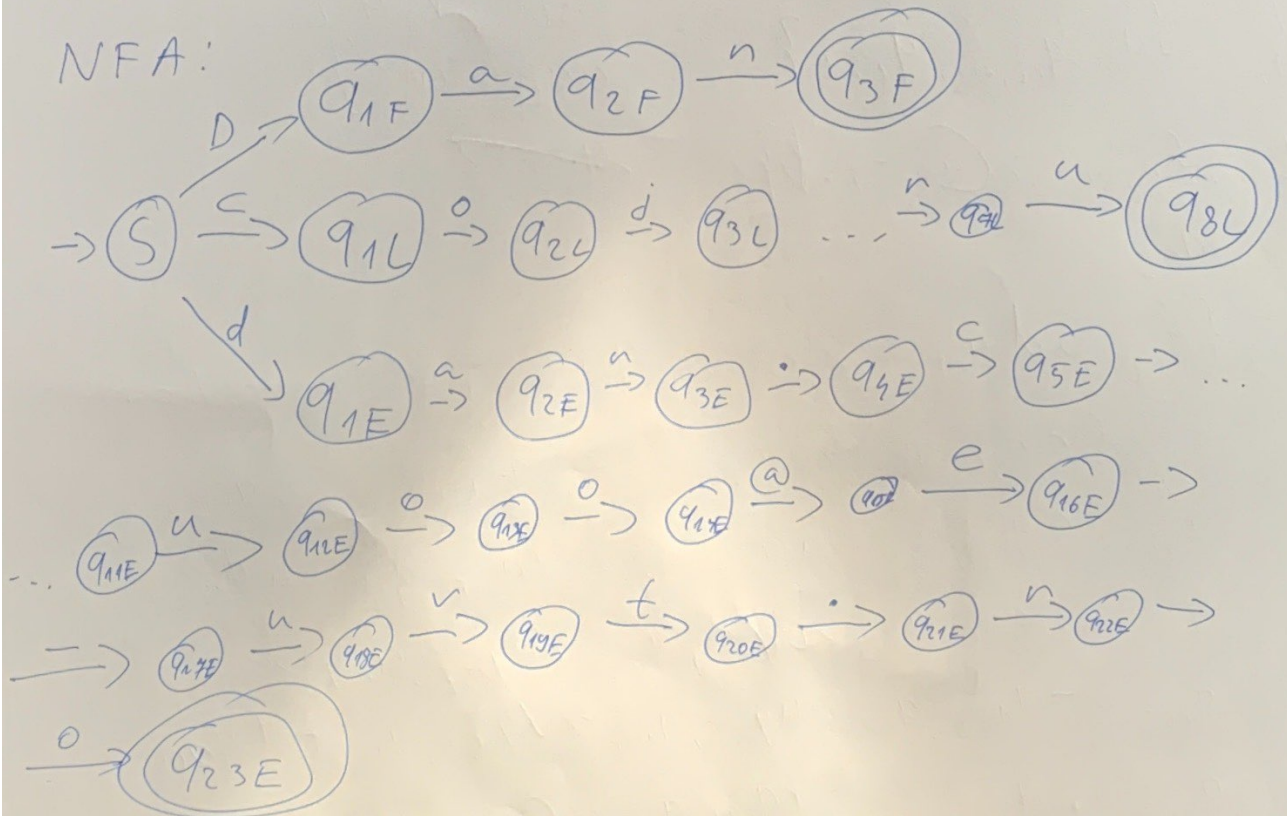 NFA:
D q1F a q2F n q3F
S c q1L o q2L d q3L ... n q7L u q8L
d q1E a q2E n q3E . q4E c q5E ...
... q11E u q12E 0 q13E 0 q14E @ e q16E
- q17E u q18E v q19E t q20E . q21E r q22E
o q23E